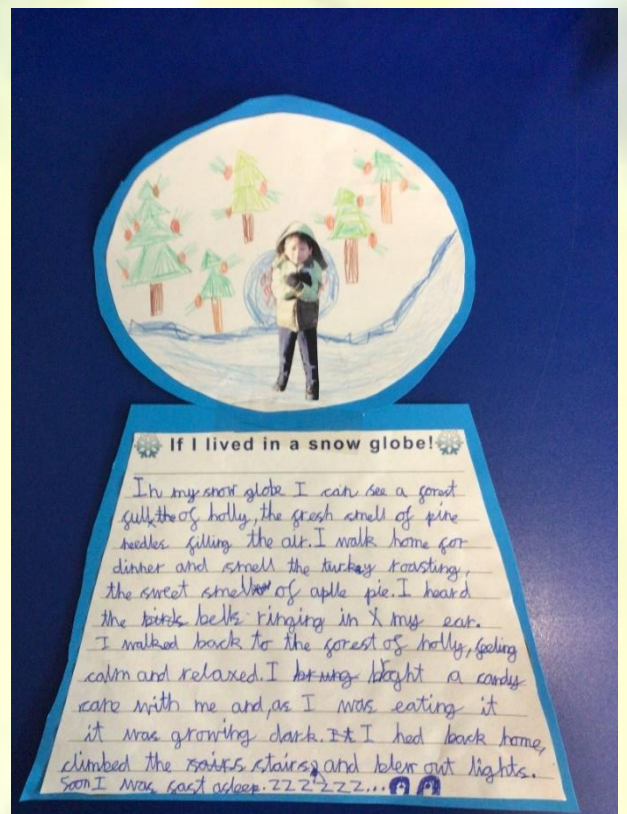 If I lived in a snow globe!
In my snow globe I can see a forest
full the of holly, the fresh smell of pine
needles filling the air. I walk home for
dinner and smell the turkey roasting,
the sweet smell of aplle pie. I heard
the birds bells ringing in my ear.
I walked back to the forest of holly, feeling
calm and relaxed. I brung a candy
cane with me and, as I was eating it
it was growing dark. It I hed back home,
climbed the sairs stairs, and blew out lights.
Soon I was fast asleep. ZZZZZZ...